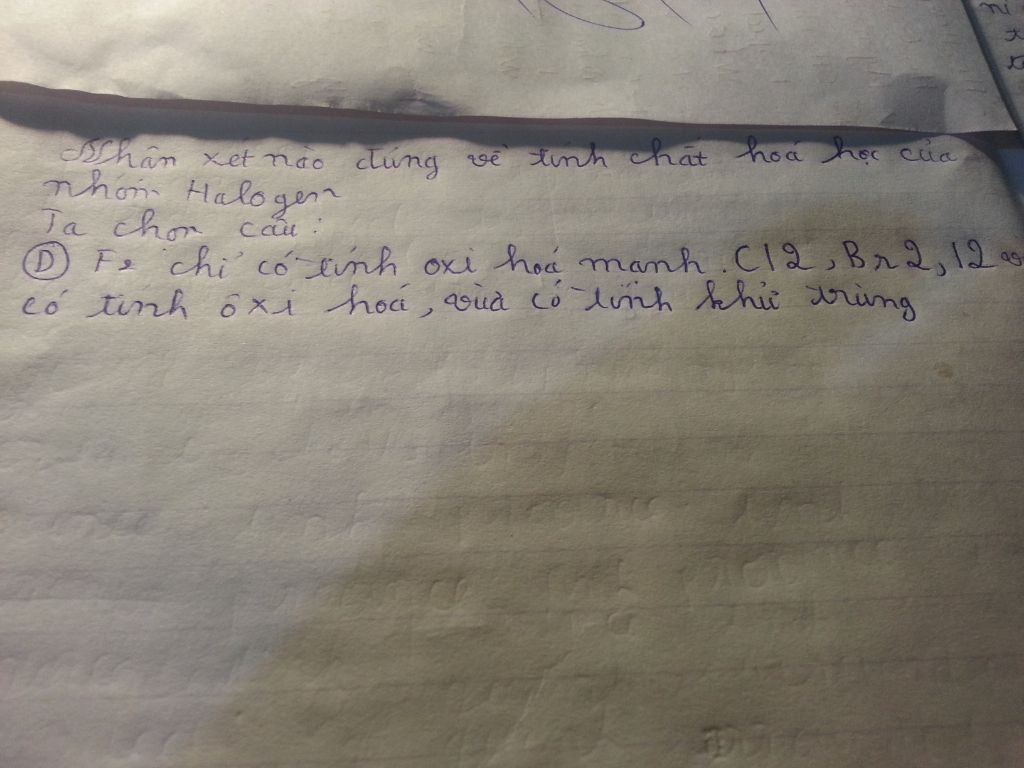 Nhận xét nào đúng về tính chất hoá học của
nhóm Halogen
Ta chọn câu:
D F2 chỉ có tính oxi hoá mạnh. Cl2, Br2, I2
có tính ôxi hoá, vừa có tính khử trùng